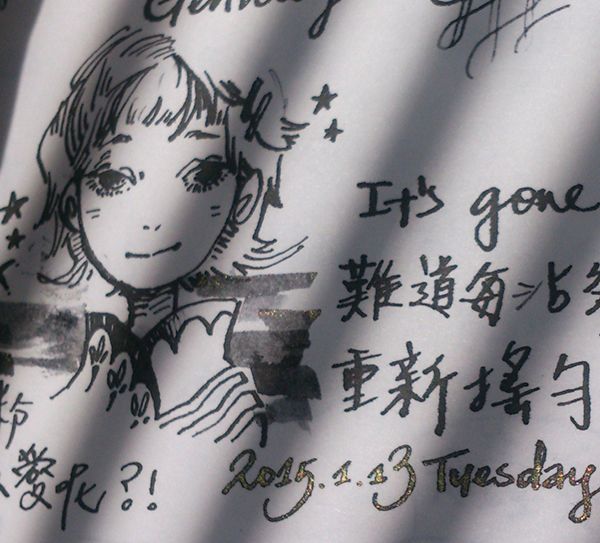 It's gone
難道每沾
重新搖勻
粉
發呢?!
2015.1.13 Tuesday